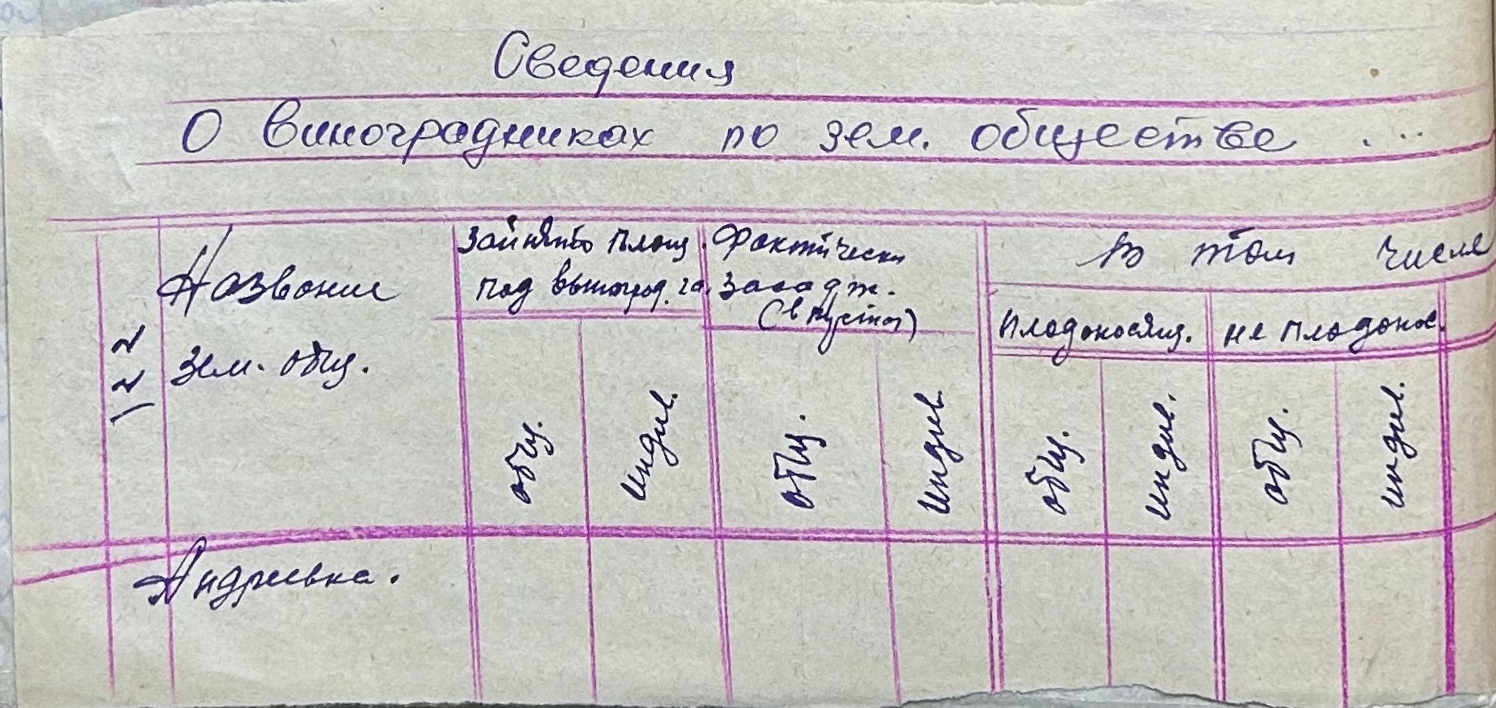 Сведения
О виноградниках по зем. обществе ...
№№
Название
зем. общ.
Занято площ.
под виноград. га.
Фактически
засадж.
(в пустот)
В том числе
плодоносящ.
не плодонос.
общ.
индив.
общ.
индив.
общ.
индив.
общ.
индив.
Андреевка.